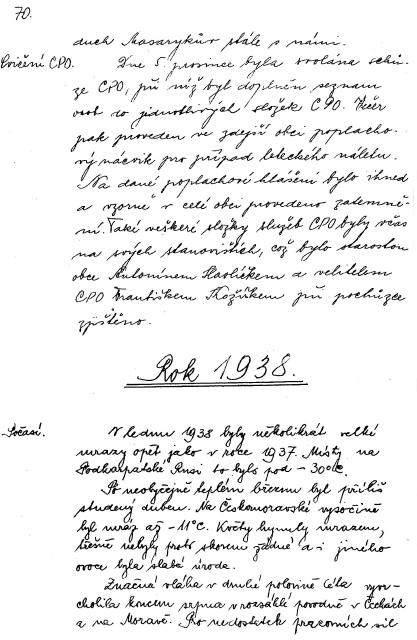 70.
duch Masarykův stále s námi.
Cvičení CPO. Dne 5. prosince byla svolána schů-
ze CPO, při níž byl doplněn seznam
osob do jednotlivých složek CPO. Večer
pak proveden ve zdejší obci poplacho-
vý nácvik pro případ leteckého náletu.
Na dané poplachové hlášení bylo ihned
a vzorně v celé obci provedeno zatemně-
ní. Také veškeré složky služeb CPO byly včas
na svých stanovištích, což bylo starostou
obce Antonínem Havlíčkem a velitelem
CPO Františkem při pochůzce
zjištěno.
Rok 1938.
Počasí. V lednu 1938 byly několikrát velké
mrazy opět jako v roce 1937. Místy na
Podkarpatské Rusi to bylo pod -30°C.
Po neobyčejně teplém březnu byl příliš
studený duben. Na Českomoravské vysočině
byl mráz až -11°C. Květy hynuly mrazem,
třešně nebyly proto skorem žádné a i jiného
ovoce byla slabá úroda.
Značná vláha v druhé polovině léta vyvr-
cholila koncem srpna v rozsáhlé povodně v Čechách
a na Moravě. Pro nedostatek pracovních sil